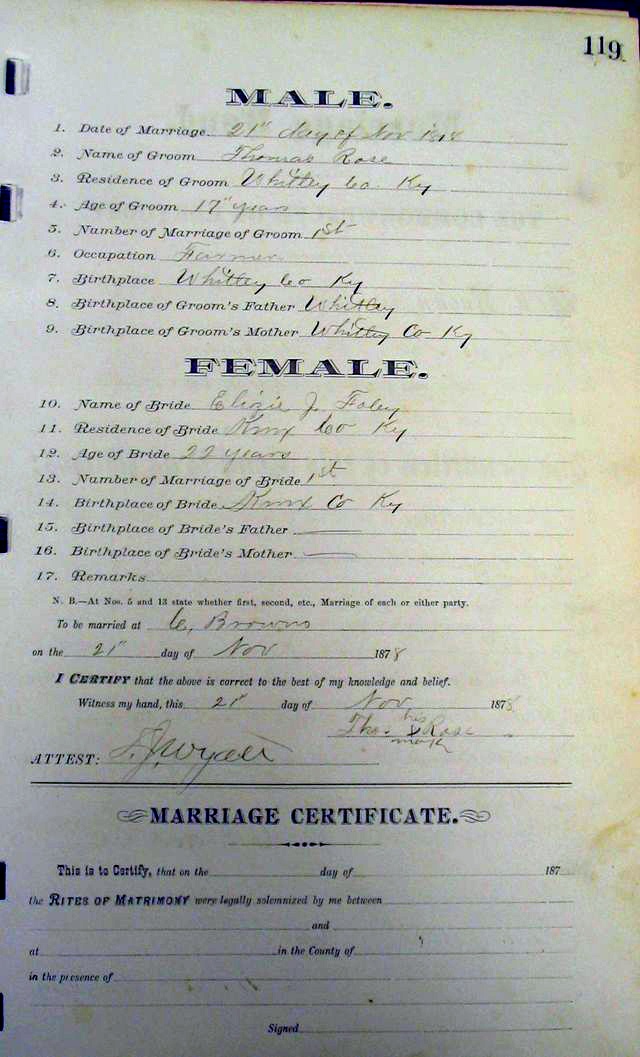 119
MALE.
1. Date of Marriage 21st day of Nov 1878
2. Name of Groom Thomas Rose
3. Residence of Groom Whitley Co Ky
4. Age of Groom 17 years
5. Number of Marriage of Groom 1st
6. Occupation Farmer
7. Birthplace Whitley Co Ky
8. Birthplace of Groom's Father Whitley
9. Birthplace of Groom's Mother Whitley Co Ky
FEMALE.
10. Name of Bride Elizie J. Foley
11. Residence of Bride Knox Co Ky
12. Age of Bride 22 years
13. Number of Marriage of Bride 1st
14. Birthplace of Bride Knox Co Ky
15. Birthplace of Bride's Father
16. Birthplace of Bride's Mother
17. Remarks
N. B.—At Nos. 5 and 13 state whether first, second, etc., Marriage of each or either party.
To be married at C. Browns
on the 21st day of Nov 1878
I CERTIFY that the above is correct to the best of my knowledge and belief.
Witness my hand, this 21st day of Nov 1878
Tho. his X mark Rose
ATTEST:
MARRIAGE CERTIFICATE.
This is to Certify, that on the day of 187
the RITES OF MATRIMONY were legally solemnized by me between
and
at in the County of
in the presence of
Signed